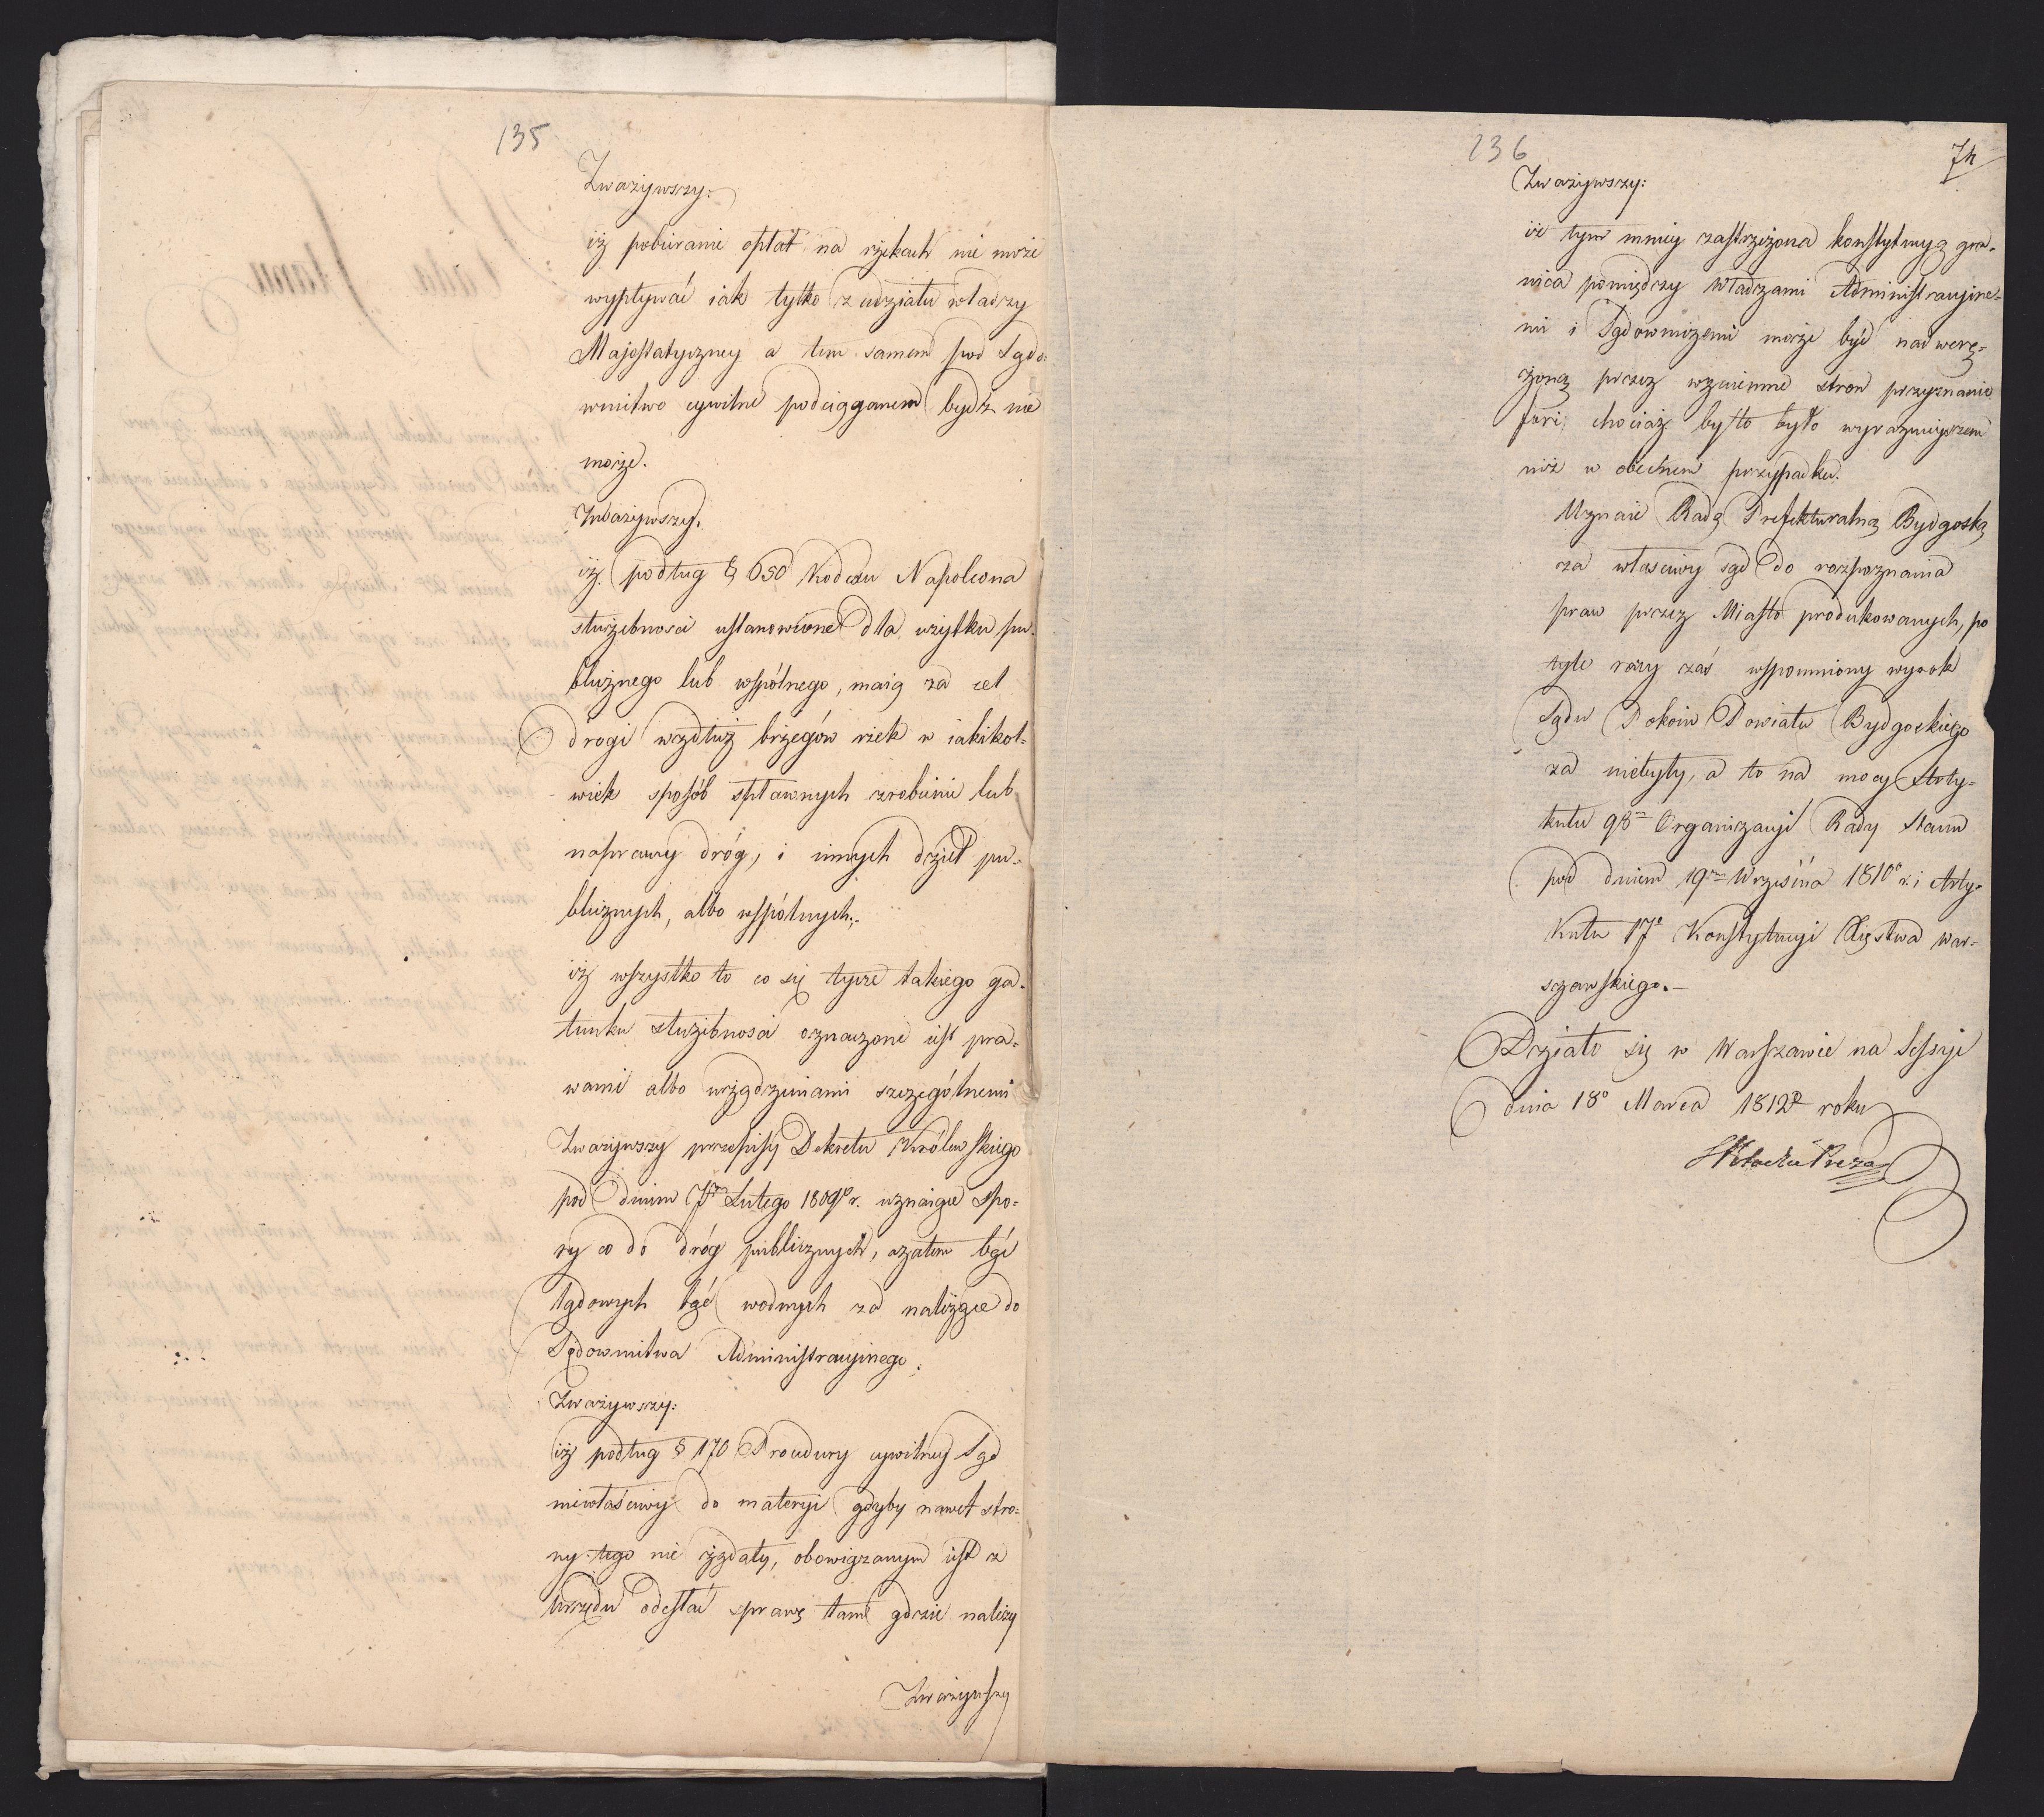 135
Zważywszy:
iż pobieranie opłat na rzekach nie może
wypływać iak tylko z udziału władzy
Majestatyczney a tem samem pod Sądo-
wnictwo cywilne podciąganem bydź nie
może.
Zważywszy.
iż podług § 650 Kodexu Napoleona
służebności ustanowione dla użytku pu-
blicznego lub wspólnego, maią za cel
drogi wzdłuż brzegów rzek w iakikol-
wiek sposób spławnych zrobienie lub
naprawy dróg, i innych dzieł pu-
blicznych, albo wspólnych;
iż wszystko to co się tycze takiego ga-
tunku służebności oznaczone iest pra-
wami albo urządzeniami szczególnemi
Zważywszy przepisy Dekretu Królewskiego
pod dniem 7m Lutego 1809o r. uznaiące spo-
ry co do dróg publicznych, azatem bąć
lądowych bąć wodnych za należące do
Sądownictwa Administracyinego.
Zważywszy:
iż podług § 170 Procedury cywilney Sąd
niewłaściwy do materyi gdyby nawet stro-
ny tego nie żądały, obowiązanym iest z
Urzędu odesłać sprawę tam gdzie należy
Zważywszy
136
74
Zważywszy:
iż tym mniey zastrzeżona konstytucyą gra-
nica pomiędzy Władzami Administracyine-
mi i Sądowniczemi może być nadwerę-
żoną przez wzaiemne stron przyznanie
fori, chociaż byto było wyraźnieyszem
niż w obecnem przypadku.
Uznaie Radę Prefekturalną Bydgoską
za właściwy sąd do rozpoznania
praw przez Miasto produkowanych, po
tyle razy zaś wspomniony wyrok
Sądu Pokoiu Powiatu Bydgoskiego
za niebyły, a to na mocy Arty-
kułu 98o Organizacyi Rady Stanu
pod dniem 19m Września 1810o r. i Arty-
kułu 17o Konstytucyi Xięstwa War-
szawskiego.-
Działo się w Warszawie na Sessyi
dnia 18o Marca 1812o roku